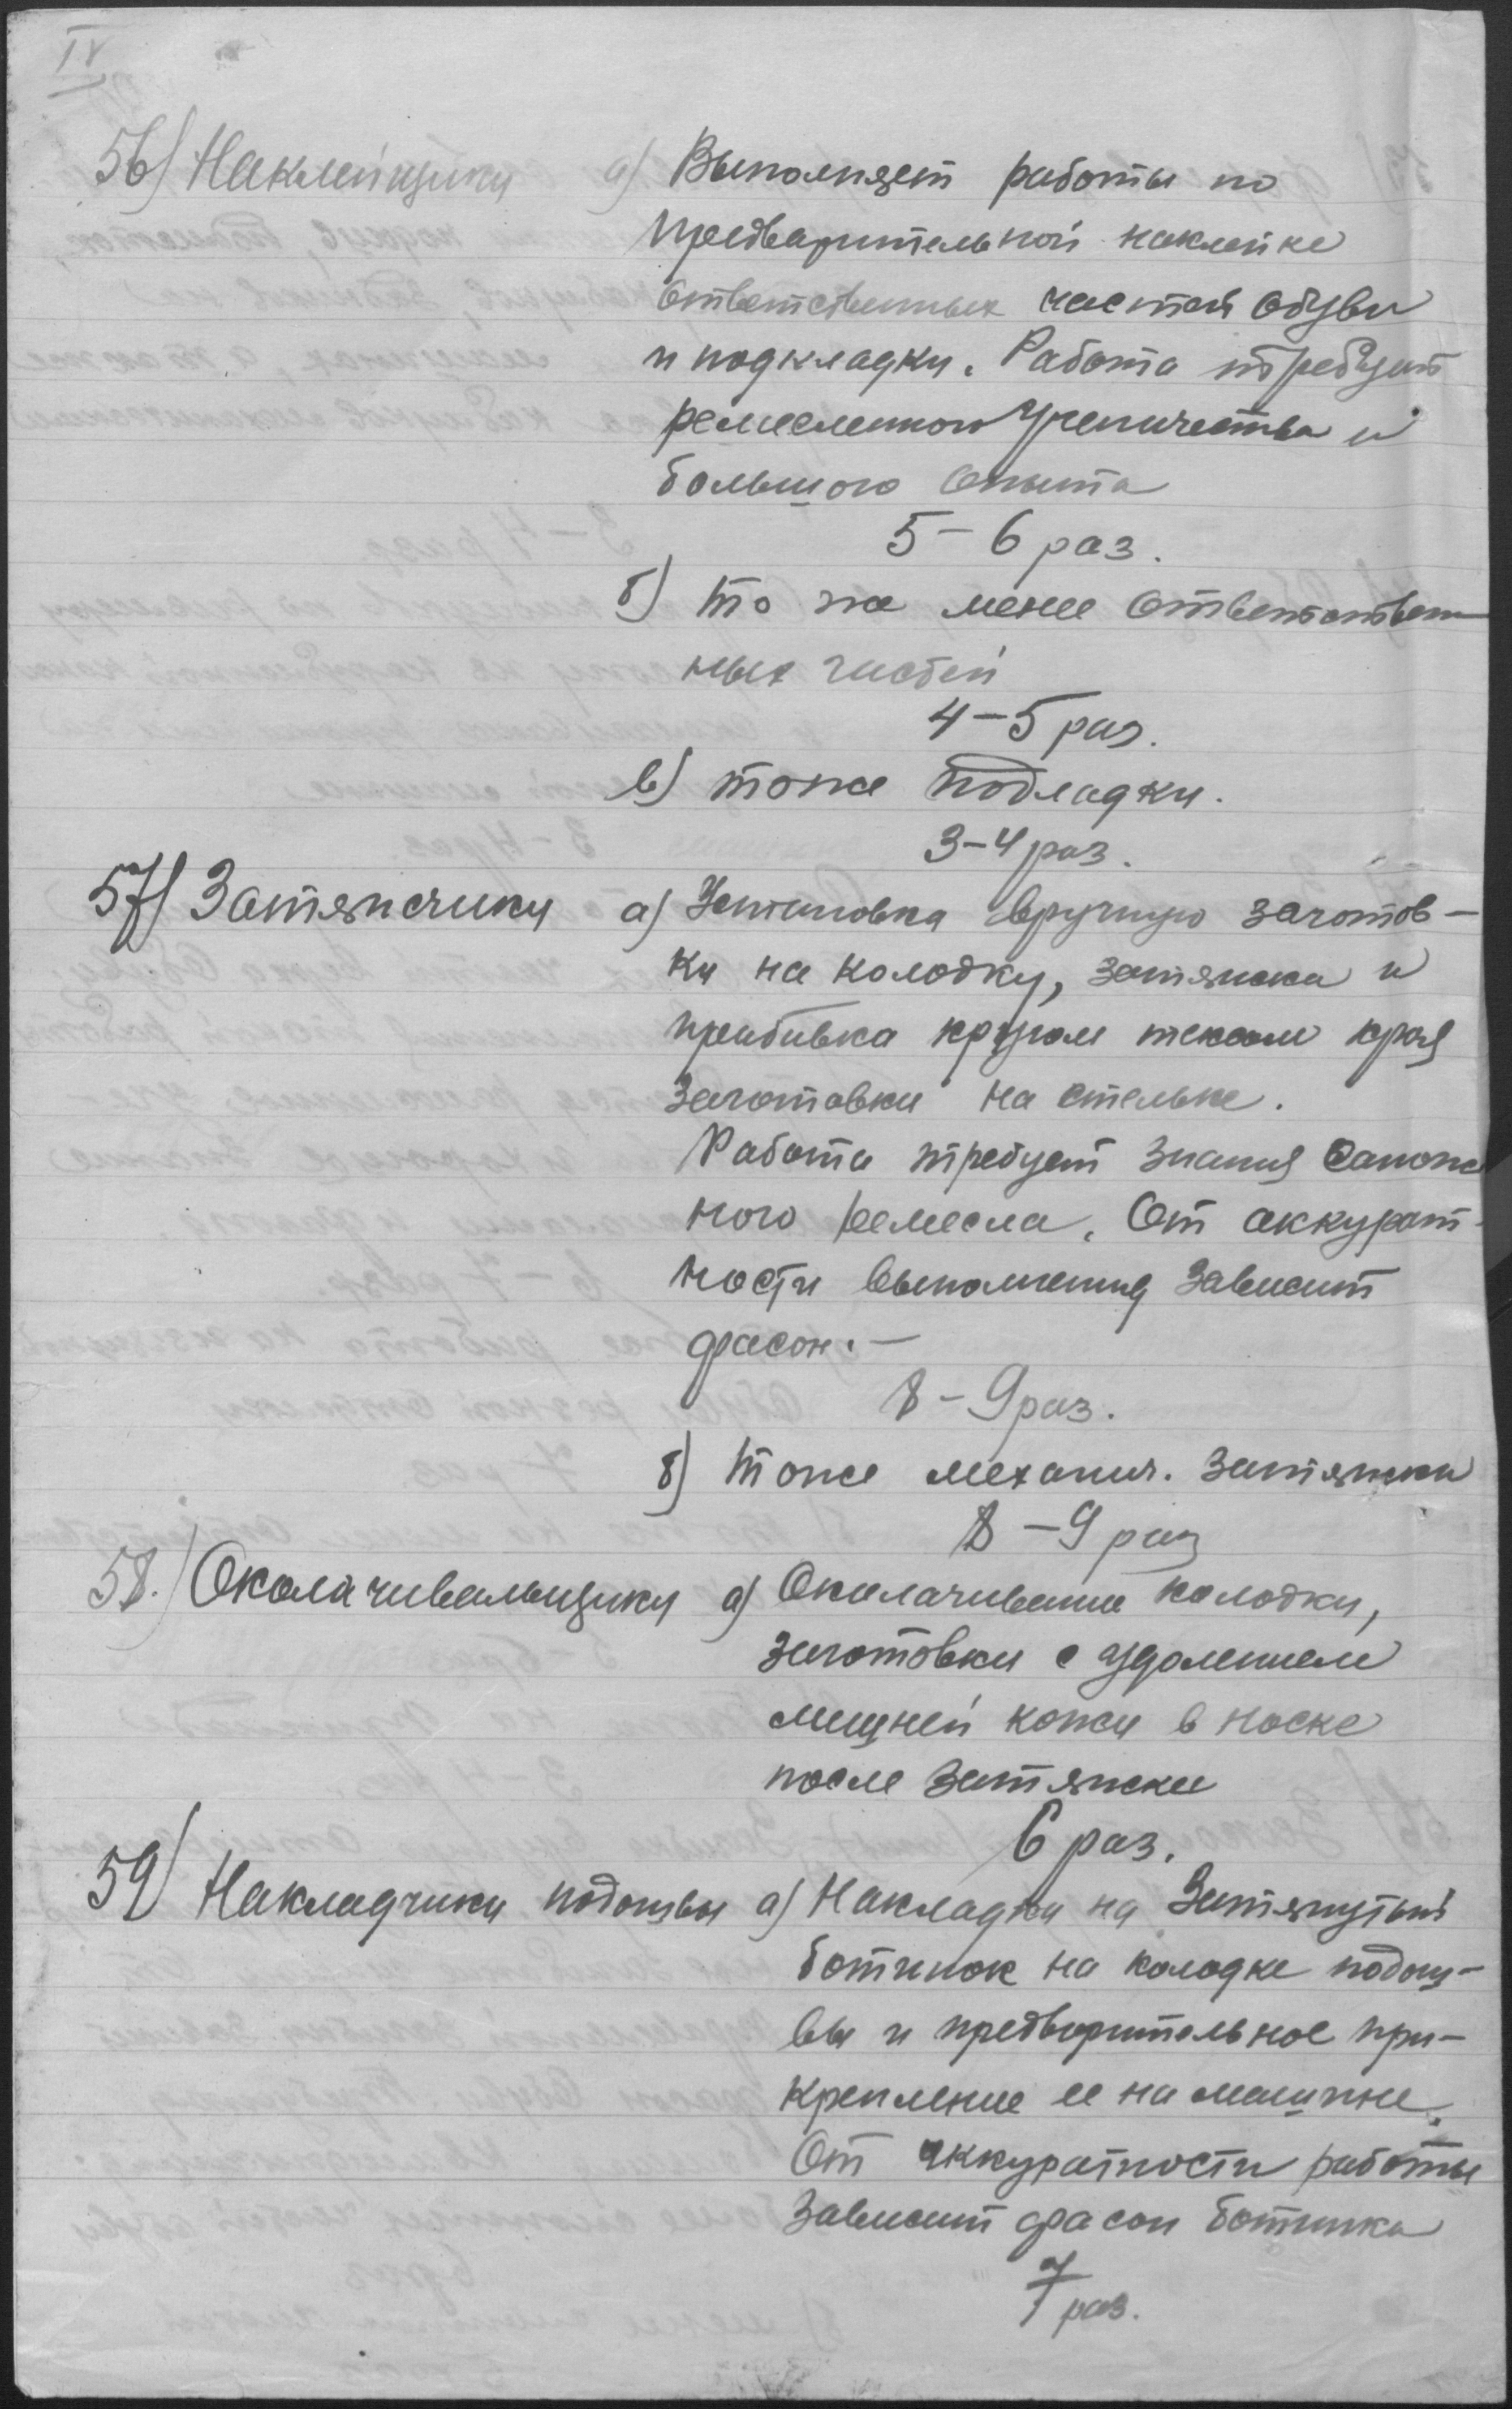 IV
56) Наклейщики а) Выполняет работы по
предварительной наклейке
ответственных частей обуви
и подкладки. Работа требует
ремесленного ученичества и
большого опыта
5 – 6 раз.
б) то же менее ответствен
ных частей
4 – 5 раз.
в) тоже подладки.
3 – 4 раз.
57) Затяжчики а) Установка вручную заготов –
ки на колодку, затяжка и
прибивка кругом тексом края
заготовки на стельке.
Работа требует знания сапож
ного ремесла. От аккурат –
ности выполнения зависит
фасон. –
8 – 9 раз.
б) тоже механич. затяжки
8 – 9 раз
58.) Околачивальщики а) Околачивание колодки,
заготовки с удалением
лишней кожи в носке
после затяжки
6 раз.
59) Накладчики подошвы а) Накладка на затянутый
ботинок на колодке подош –
вы и предворительное при –
крепление ее на машине.
От аккуратности работы
зависит фасон ботинка
7 раз.